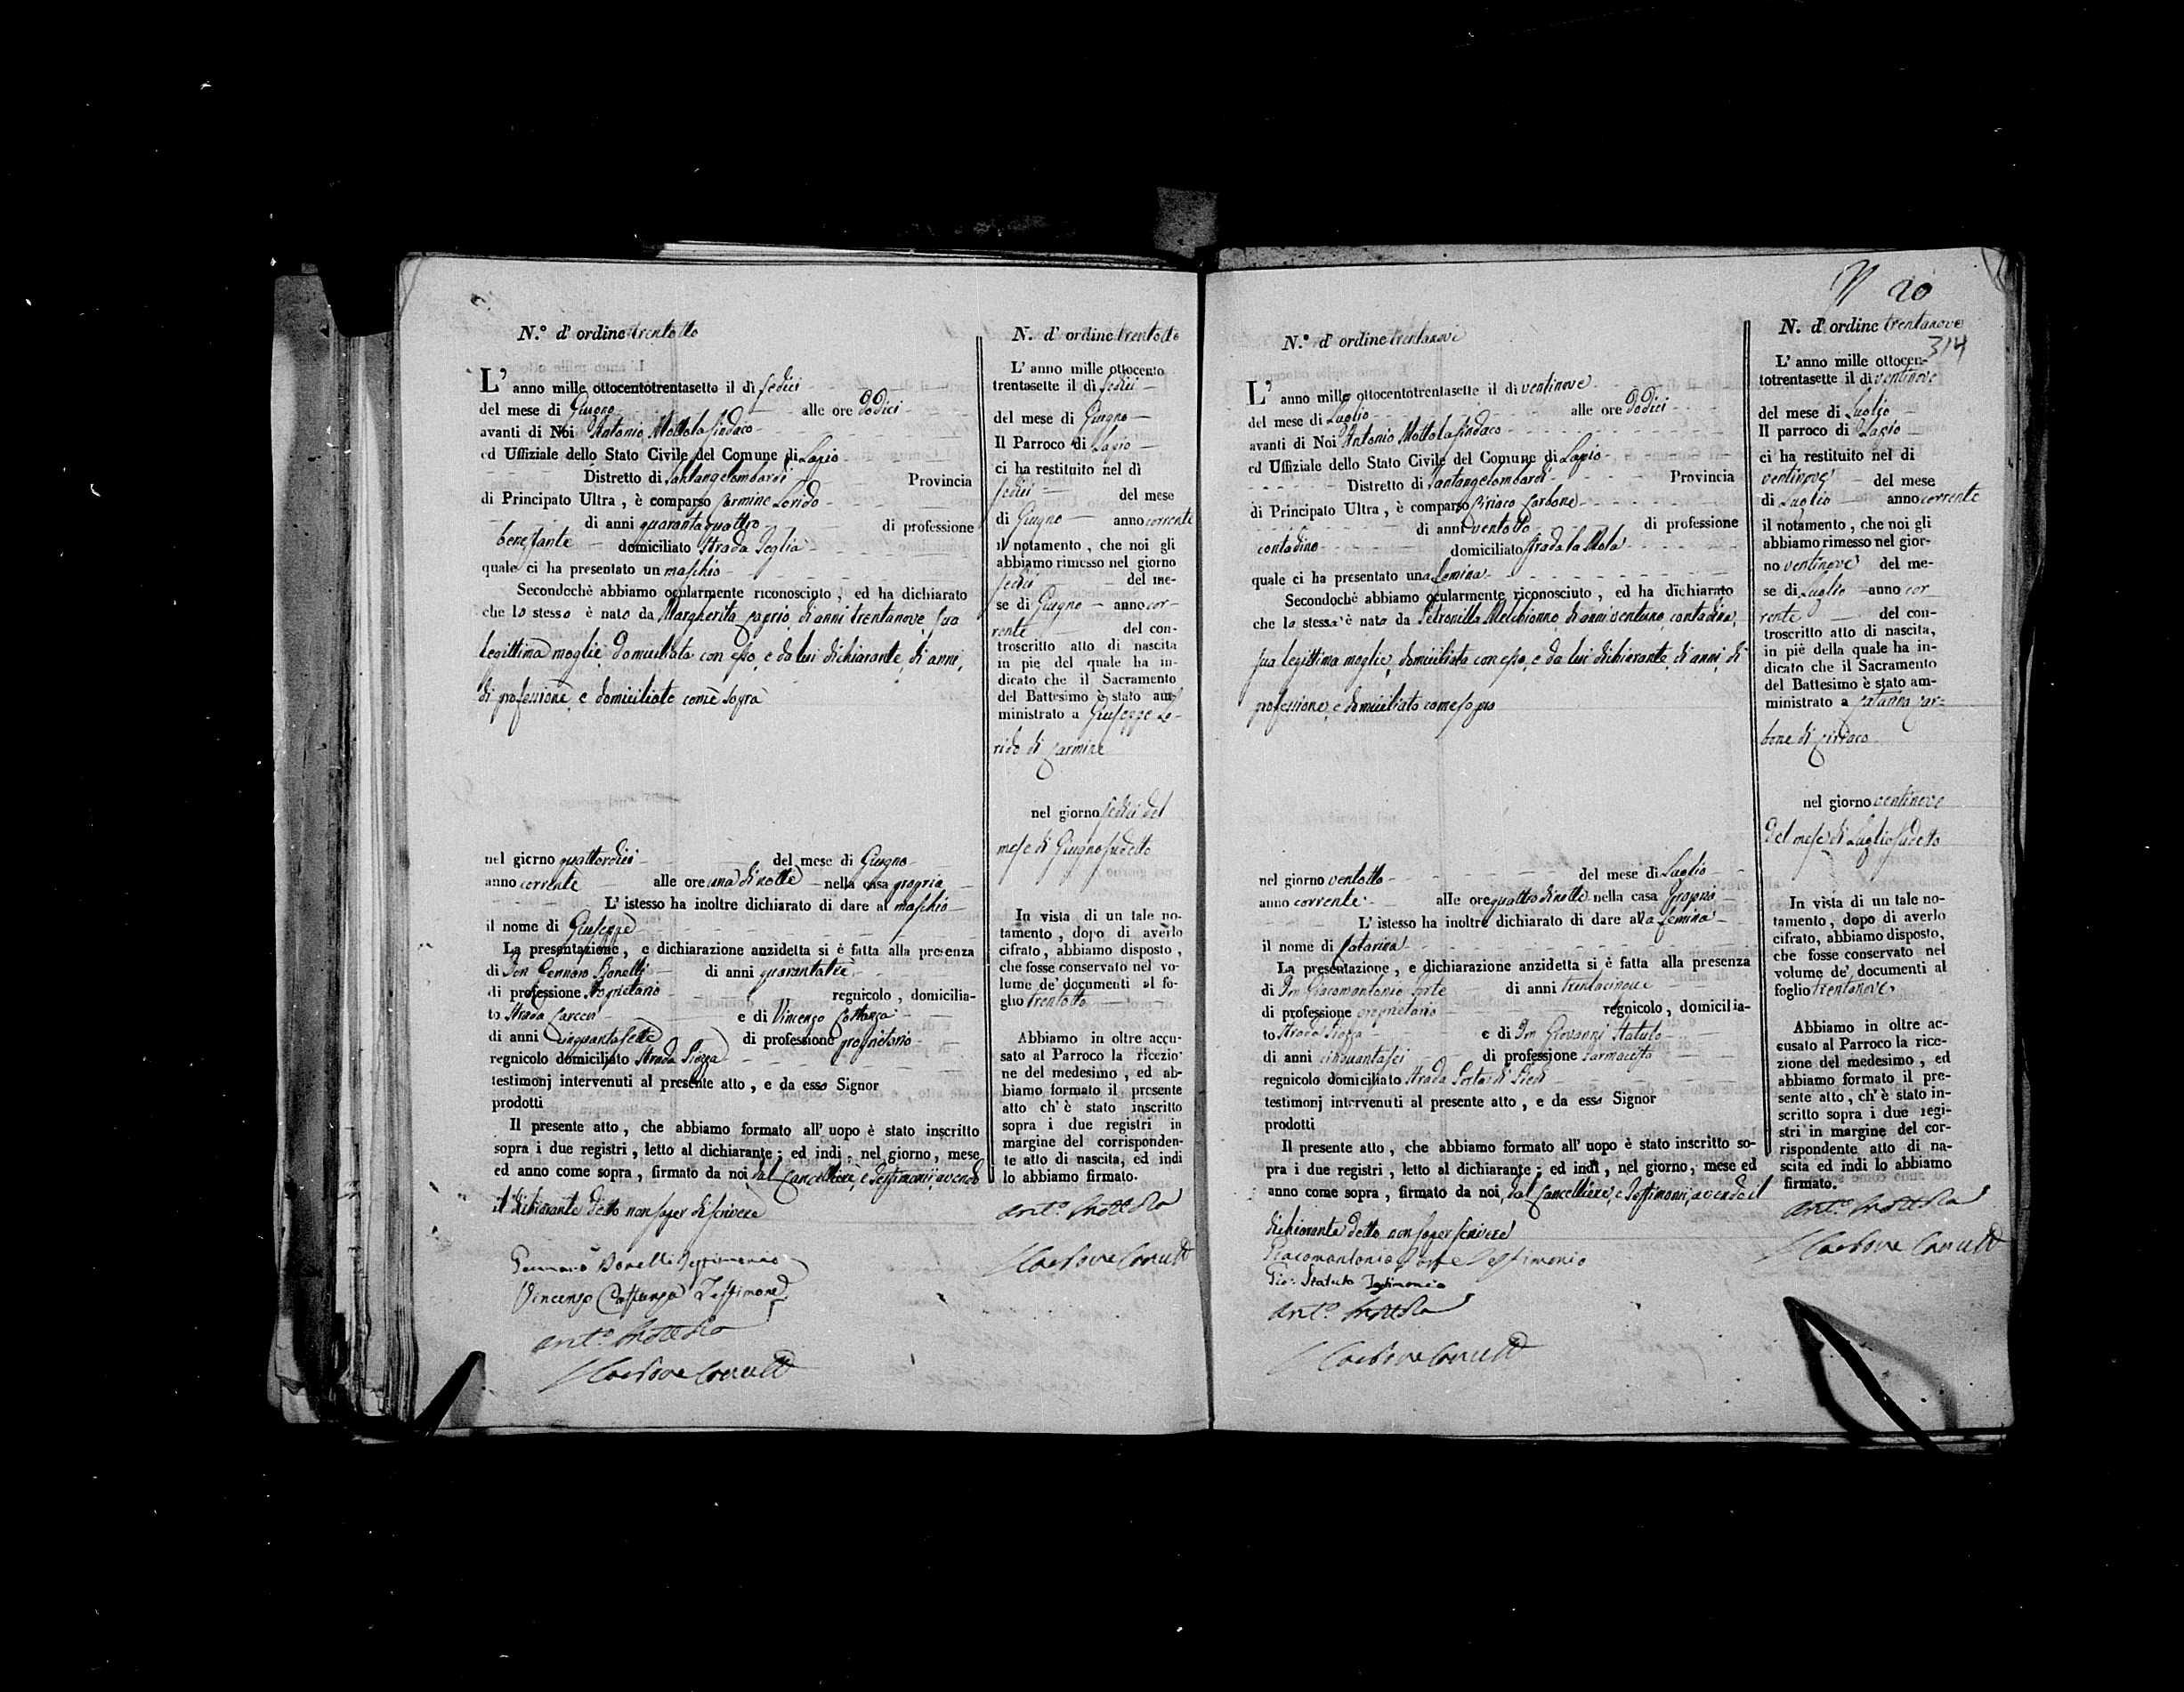 N.° d' ordine trentotto
L' anno mille ottocentotrentasette il dì sedici
del mese di Giugno alle ore dodici
avanti di Noi Antonio Mottola Sindaco
ed Uffiziale dello Stato Civile del Comune di Lapio
Distretto di Santangelombardi Provincia
di Principato Ultra, è comparso Carmine Lorido
di anni quarantaquattro di professione
benestante domiciliato Strada Teglia
quale ci ha presentato un maschio
Secondochè abbiamo ocularmente riconosciuto, ed ha dichiarato
che lo stesso è nato da Margherita Caprio, di anni trentanove, sua
legittima moglie, domiciliata con esso, e da lui dichiarante, di anni,
di professione, e domiciliato come sopra
nel giorno quattordici del mese di Giugno
anno corrente alle ore una di notte nella casa propria
L' istesso ha inoltre dichiarato di dare al maschio
il nome di Giuseppe
La presentazione, e dichiarazione anzidetta si è fatta alla presenza
di Don Gennaro Bonelli di anni quarantatre
di professione Proprietario regnicolo, domicilia-
to Strada Carceri e di Vincenzo Costanza
di anni cinquantasette di professione proprietario
regnicolo domiciliato Strada Piazza
testimonj intervenuti al presente atto, e da esso Signor
prodotti
Il presente atto, che abbiamo formato all' uopo è stato inscritto
sopra i due registri, letto al dichiarante; ed indi, nel giorno, mese
ed anno come sopra, firmato da noi, dal Cancelliere, e Testimonii, avendo
il dichiarante detto non saper di scrivere
Gennaro Bonelli Testimonio
Vincenzo Costanza Testimone
Ant.° Mottola
Carbone Canc.
N. d' ordine trentotto
L' anno mille ottocento
trentasette il dì sedici
del mese di Giugno
Il Parroco di Lapio
ci ha restituito nel dì
sedici del mese
di Giugno anno corrente
il notamento, che noi gli
abbiamo rimesso nel giorno
sedici del me-
se di Giugno anno cor-
rente del con-
troscritto atto di nascita
in piè del quale ha in-
dicato che il Sacramento
del Battesimo è stato am-
ministrato a Giuseppe Lo-
rido di Carmine
nel giorno sedici del
mese di Giugno sudetto
In vista di un tale no-
tamento, dopo di averlo
cifrato, abbiamo disposto,
che fosse conservato nel vo-
lume de' documenti al fo-
glio trentotto
Abbiamo in oltre accu-
sato al Parroco la ricezio-
ne del medesimo, ed ab-
biamo formato il presente
atto ch' è stato inscritto
sopra i due registri in
margine del corrisponden-
te atto di nascita, ed indi
lo abbiamo firmato.
Ant.° Mottola
Carbone Canc.
N 20
314
N.° d' ordine trentanove
L' anno mille ottocentotrentasette il dì ventinove
del mese di Luglio alle ore dodici
avanti di Noi Antonio Mottola Sindaco
ed Uffiziale dello Stato Civile del Comune di Lapio
Distretto di Santangelombardi Provincia
di Principato Ultra, è comparso Ciriaco Carbone
di anni ventotto di professione
contadino domiciliato Strada la Mola
quale ci ha presentato una femina
Secondochè abbiamo ocularmente riconosciuto, ed ha dichiarato
che la stessa è nata da Petronilla Melchionno, di anni ventuno, contadina,
sua legittima moglie, domiciliata con esso, e da lui dichiarante, di anni, di
professione, e domiciliato come sopra
nel giorno ventotto del mese di Luglio
anno corrente alle ore quattro di notte nella casa Propria
L' istesso ha inoltre dichiarato di dare alla femina
il nome di Catarina
La presentazione, e dichiarazione anzidetta si è fatta alla presenza
di Don Giacomantonio Forte di anni trentacinque
di professione proprietario regnicolo, domicilia-
to Strada Piazza e di Don Giovanni Statuto
di anni cinquantasei di professione Farmacista
regnicolo domiciliato Strada Porta di Piedi
testimonj intervenuti al presente atto, e da esso Signor
prodotti
Il presente atto, che abbiamo formato all' uopo è stato inscritto so-
pra i due registri, letto al dichiarante; ed indi, nel giorno, mese ed
anno come sopra, firmato da noi, dal Cancelliere, e Testimoni, avendo il
dichiarante detto non saper scrivere
Giacomantonio Forte Testimonio
Gio: Statuto Testimonio
Ant.° Mottola
Carbone Canc.
N. d' ordine trentanove
L' anno mille ottocen-
totrentasette il dì ventinove
del mese di Luglio
Il parroco di Lapio
ci ha restituito nel dì
ventinove del mese
di Luglio anno corrente
il notamento, che noi gli
abbiamo rimesso nel gior-
no ventinove del me-
se di Luglio anno cor-
rente del con-
troscritto atto di nascita,
in piè della quale ha in-
dicato che il Sacramento
del Battesimo è stato am-
ministrato a Catarina Car-
bone di Ciriaco
nel giorno ventinove
del mese di Luglio sudetto
In vista di un tale no-
tamento, dopo di averlo
cifrato, abbiamo disposto,
che fosse conservato nel
volume de' documenti al
foglio trentanove
Abbiamo in oltre ac-
cusato al Parroco la rice-
zione del medesimo, ed
abbiamo formato il pre-
sente atto, ch' è stato in-
scritto sopra i due regi-
stri in margine del cor-
rispondente atto di na-
scita ed indi lo abbiamo
firmato.
Ant.° Mottola
Carbone Canc.